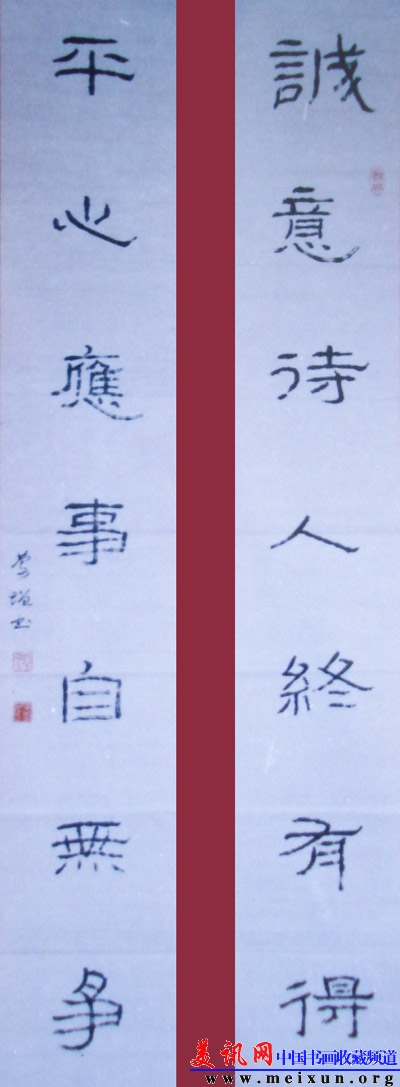 誠意待人終有得
平心應事自無爭
美讯网 中国书画收藏频道
www.meixun.org